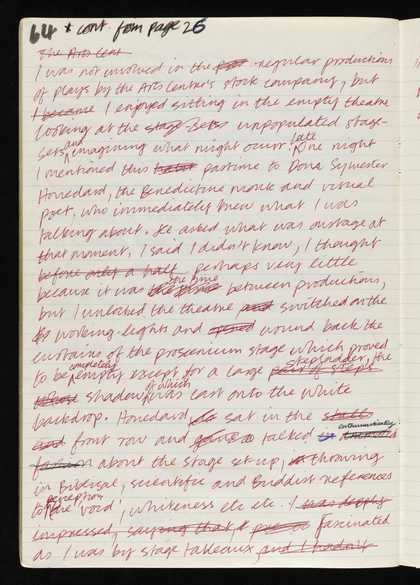 64 * cont. from page 26
The Arts Cent
I was not involved in the regular productions
of plays by the Arts Center's stock company, but
I became I enjoyed sitting in the empty theatre
looking at the stage sets unpopulated stage-
sets and imagining what might occur. late One night
I mentioned this pastime to Dom Sylvester
Houedard, the Benedictine monk and visual
poet, who immediately knew what I was
talking about. He asked what was onstage at
that moment, I said I didn't know, I thought
before only a half perhaps very little
because it was the time between productions,
but I unlocked the theatre switched on the
working-lights and opened wound back the
curtains of the proscenium stage which proved
to be completely empty except for a large pair of steps stepladder, the
whose shadow of which was cast onto the white
backdrop. Houedard, sat in the stalls
and front row and talked in enthusiastically
fashion about the stage set-up, throwing
in Biblical, scientific and Buddist references
to perception, the 'void', whiteness etc etc. I was deeply
impressed, saying that, fascinated
as I was by stage tableaux, and I hadn't